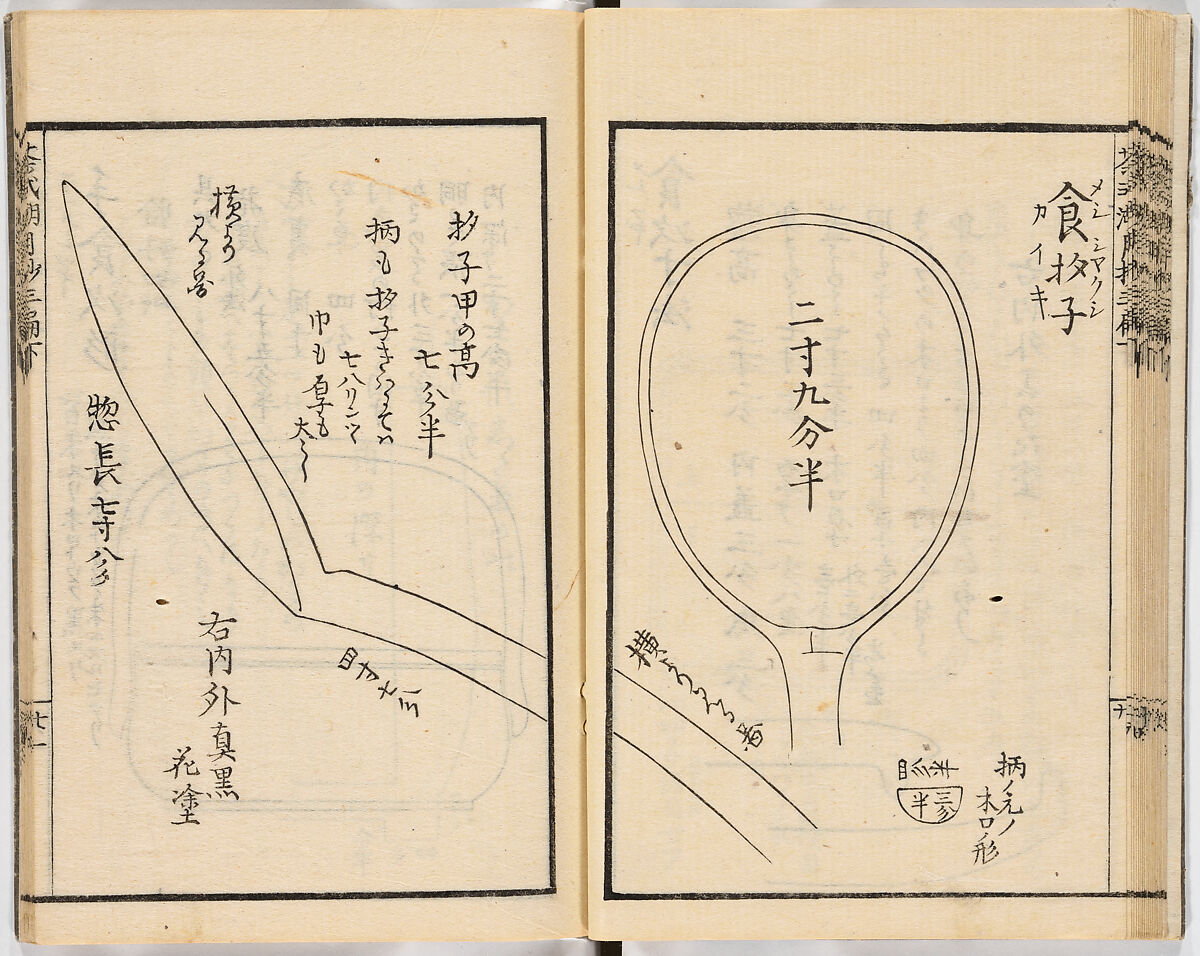 食抄子
メシシヤクシ
カイキ
二寸九分半
横より見る図
柄ノ元ノ
木口ノ形
四分半
三分
半
抄子甲の高
七分半
柄も抄子きはにては
七八リンツヽ
巾も厚も
横より
見る図
惣長七寸八分
四寸七分
右内外真黒
花塗